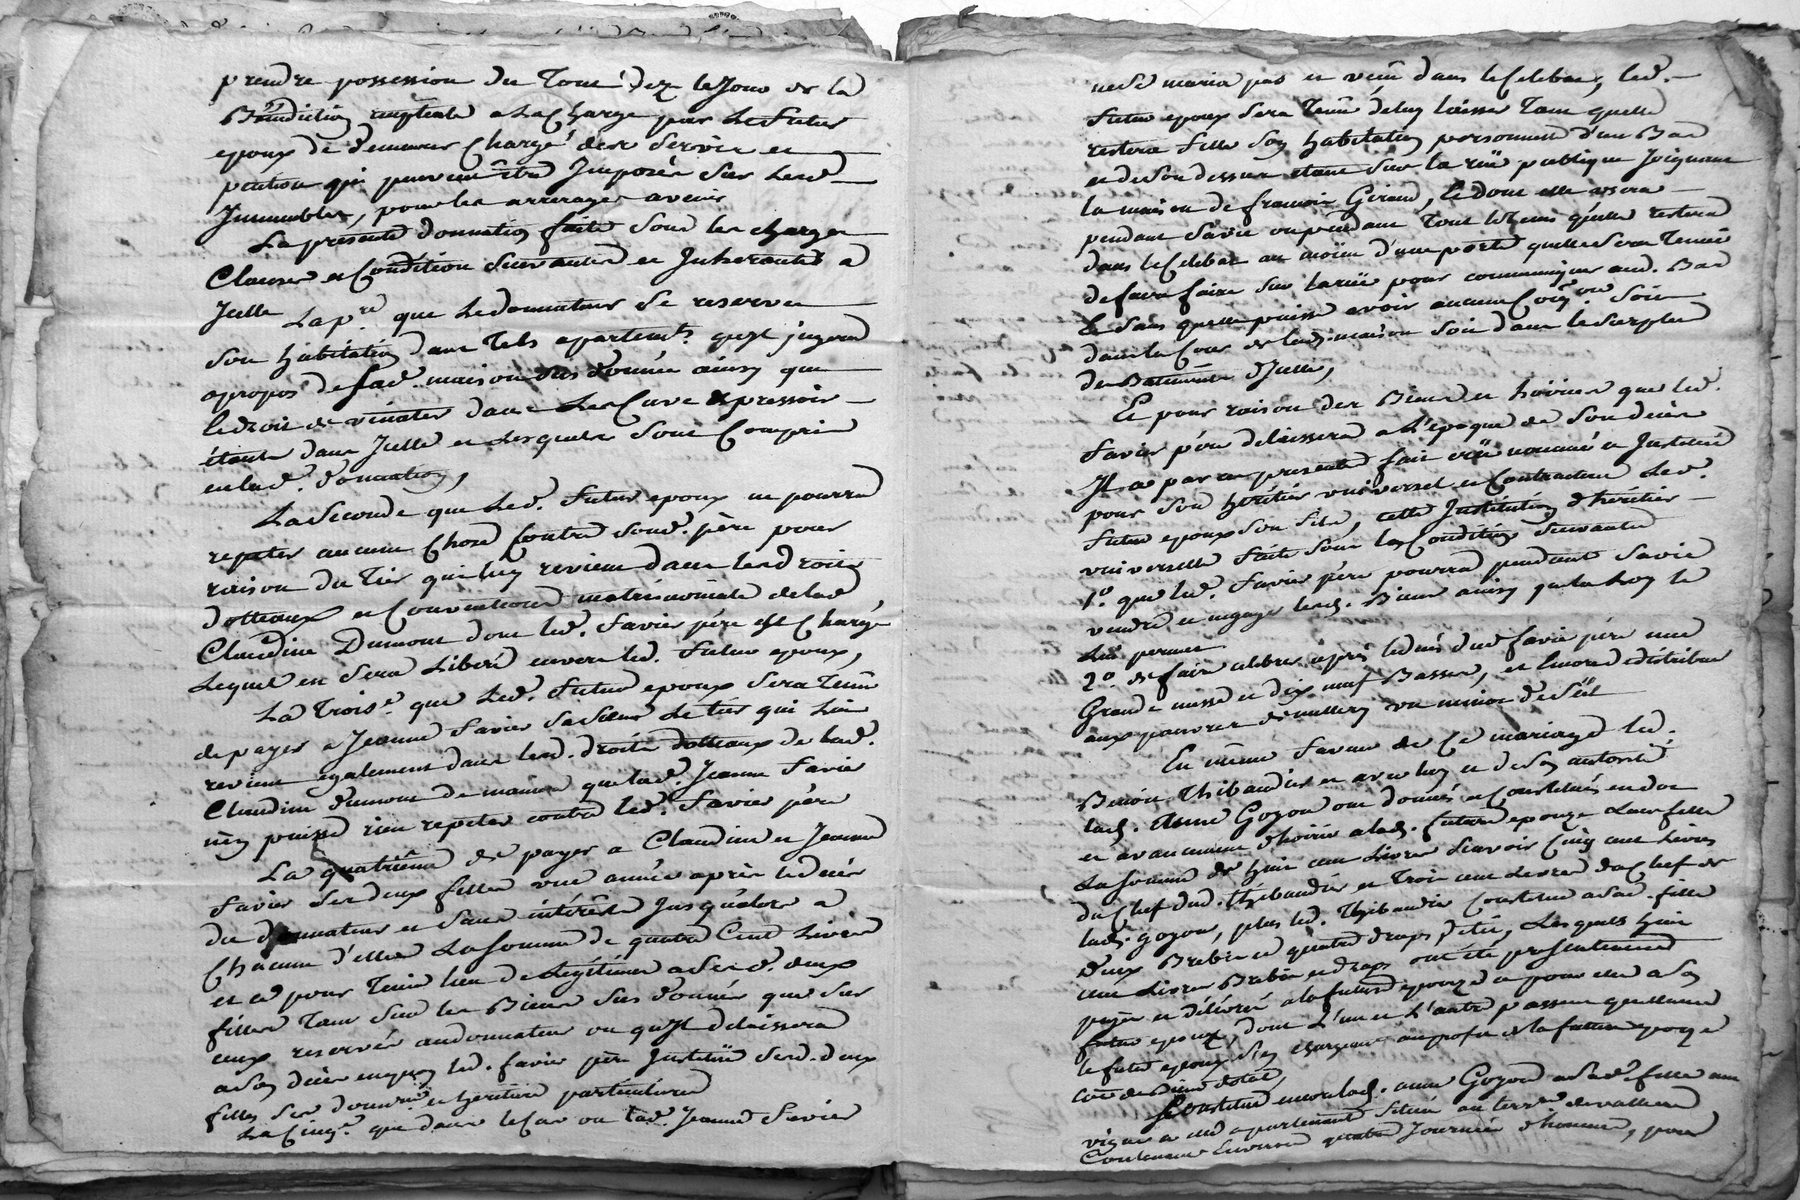 prendre possession du Tout dez le Jour de la
Bénédiction nuptiale a La Charge par Le futur
epoux de demeurer Chargé des Servis et
pention qui peuvent être Imposés Sur Lesd.
Immeubles, pour les arrerages avenir
La présente donnation faite Sous les charges
Clauses et Condition Suivantes et Inherantes a
Jcelle La p.re que Le donnateur Se reserve
Son habitation dans Tels apartemts qu'il jugera
apropos de lad. maison Sus donnée ainsy que
le droit de dans Les Cuve & pressoir
étant dans Jcelle et Lesquels Sont Compris
en lad. donnation,
La Seconde que Led. futur epoux ne pourra
repeter aucune Chose Contre Sond. père pour
raison du Tier qui luy revient dans les droits
dotteaux et Conventions matrimoniale de lad.
Claudine Dumont dont led. favier père est Chargé
Lequel en Sera Liberé envers led. futur epoux,
La Trois.e que Led. futur epoux Sera Tenu
de payer a Jeanne favier Sa Sœur Le tier qui Lui
revient egalement dans lesd. droits dotteaux de lad.
Claudine dumont de maniere que lad. Jeanne favier
n'en puisse rien repeter contre led. favier père
La quatriême de payer a Claudine et Jeanne
favier Ses deux filles une année après le décès
du donnateur et Sans intérêts Jusqu'alors a
Chacune d'elles La Somme de quatre Cent Livres
et ce pour Tenir lieu de Légitime a Sesd. deux
filles Tant Sur les Biens Sus donnés que Sur
ceux reservés au donnateur ou qu'il delaissera
a Son décès led. favier père Institue Sesd. deux
filles Ses et héritiere particulieres
La Cinq.e que dans le Cas ou lad. Jeanne favier
ne Se maria pas et vecu dans le Celibat, led.
futur epoux Sera Tenu de luy laisser Tant quelle
restera fille Son habitation personnelle d'un Bas
et de Son dessus etant Sur la rüe publique Joignant
la maison de francois Giraud, le dont elle
pendant Sa vie ou pendant Tout le tems qu'elle restera
dans le Celibat au moïen d'une porte quelle Sera Tenue
de faire faire Sur la rüe pour communiquer aud. Bas
& Sans quelle puisse avoir aucune Soit
dans la Cour de lad. maison Soit dans le Surplus
de Batiments d'Jcelle,
Et pour raison des Biens et hoiries que led.
favier père delaissera a L'epoque de Son décès
Il a par ces presentes fait nommé et Institué
pour Son heritier universel et Contractuel Led.
futur epoux Son fils, cette Institution d'heritier
universelle faite Sous les Conditions Suivantes
1.o que led. favier père pourra pendant Sa vie
vendre et engager lesd. Biens ainsy que la Loy le
Lui permet
2.o de faire celebrer après le décès dud favier père une
Grande messe et dix neuf Basses, et encore distribuer
aux pauvres de
En même faveur de Ce mariage led.
Benoit Thibaudier et avec luy et de Son autorité
lad. Anne Goyon ont donnés et Constitués en dot
et avancement d'hoirie a lad. future epouze Leur fille
La Somme de huit cent Livres Scavoir Cinq cent Livres
du Chef dud. Thibaudier et Trois cent Livres du Chef de
lad. Goyon, plus led. Thibaudier Constitue a Sad. fille
deux Brebis et quatre draps de lit, Lesquels huit
cent Livres Brebis et draps ont été presentement
payés et délivrés a la future epouze et pour elle a Son
futur epoux, dont L'un et L'autre passent quittance
le futur epoux S'en chargeant au profit de la future epouze
Constitue encore lad. anne Goyon a Sad. fille une
vigne a elle apartenant Située au terr.re de
Contenant Environ quatre Journées d'hommes, pour